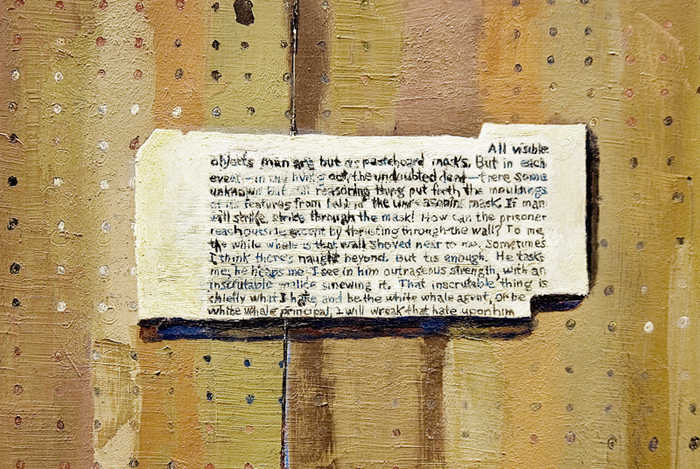 All visible
objects man are but as pasteboard masks. But in each
event—in the living act, the undoubted deed—there some
unknown but still reasoning thing put forth the mouldings
of its features from behind the unreasoning mask. If man
will strike, strike through the mask! How can the prisoner
reach outside except by thrusting through the wall? To me,
the white whale is that wall shoved near to me. Sometimes
I think there's naught beyond. But tis enough. He tasks
me, he heaps me. I see in him outrageous strength, with an
inscrutable malice sinewing it. That inscrutable thing is
chiefly what I hate and be the white whale agent, or be
white whale principal, I will wreak that hate upon him